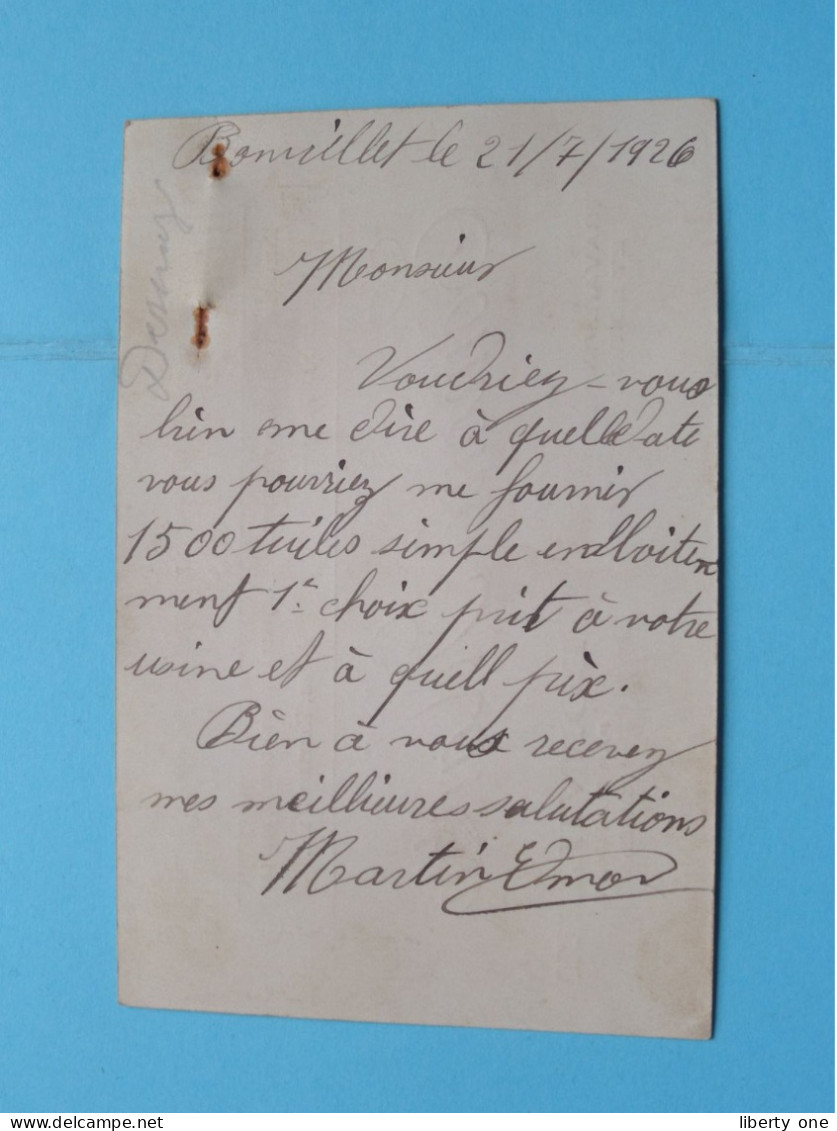 le 21/7/1926
Monsieur
Voudriez-vous
bien me dire à quelle date
vous pourriez me fournir
1500 tuiles simple emboiten
ment 1r choix prit à votre
usine et à quell prix.
Bien à vous recevez
mes meillieures salutations
Martin
liberty one